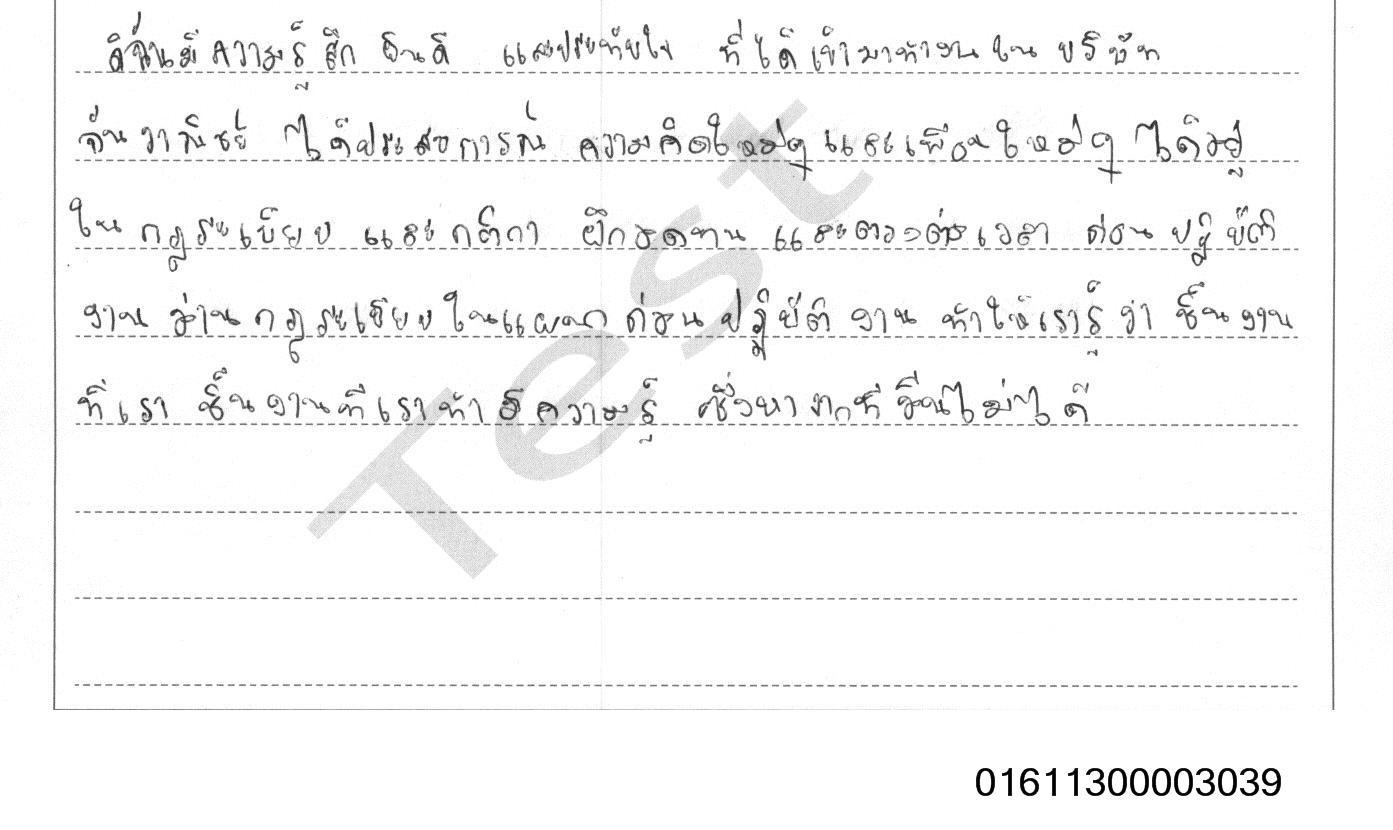 ดิฉันมีความรู้สึก ยินดี และประทับใจ ที่ได้เข้ามาทำงานใน บริษัท
จันวาณิชย์ ได้ประสบการณ์ ความคิดใหม่ๆและเพื่อนใหม่ๆ ได้อยู่
ใน กฎระเบียบ และกติกา ฝึกอดทน และตรงต่อเวลา ก่อนปฏิบัติ
งาน อ่านกฎระเบียบในแผนกก่อนปฏิบัติ งาน ทำให้เรารู้ว่า ชิ้นงาน
ที่เรา ชิ้นงานที่เราทำ มีความรู้ ซึ่งหาจากที่อื่นไม่ได้
Test
01611300003039